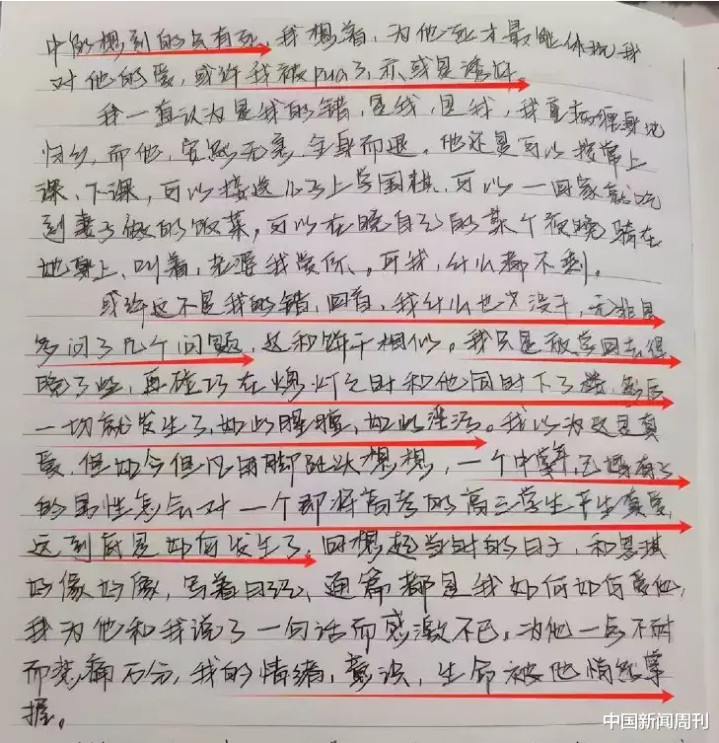 中的想到的只有死，我想着，为他死才最能体现我
对他的爱，或许我被pua了，亦或是诱奸。
我一直认为是我的错，是我，是我，我直接缠身地
归乡，而他，安然无恙，全身而退，他还是可以按常上
课、下课，可以接送儿子上学围棋，可以一回家就吃
到妻子做的饭菜，可以在晚自习的某个夜晚骑在
她身上、叫着，老婆我爱你、。可我，什么都不剩。
或许这不是我的错，回首，我什么也没干，无非是
多问了几个问题，这和饼干相似。我只是放学回去得
晚了些，再碰巧在熄灯之时和他同时下了楼，然后
一切就发生了，如此腥膻，如此淫浸。我以为这是真
爱，但如今但凡用脚趾头想想，一个中年已婚有子
的男性怎会对一个即将高考的高三学生产生真爱，
这到底是如何发生了。回想起当时的日子，和思琪
好像好像，写着日记，通篇都是我如何如何爱他，
我为他和我说了一句话而感激不已，为他一点不耐
而悲痛万分，我的情绪，意识，生命被他悄然掌
握。
中国新闻周刊